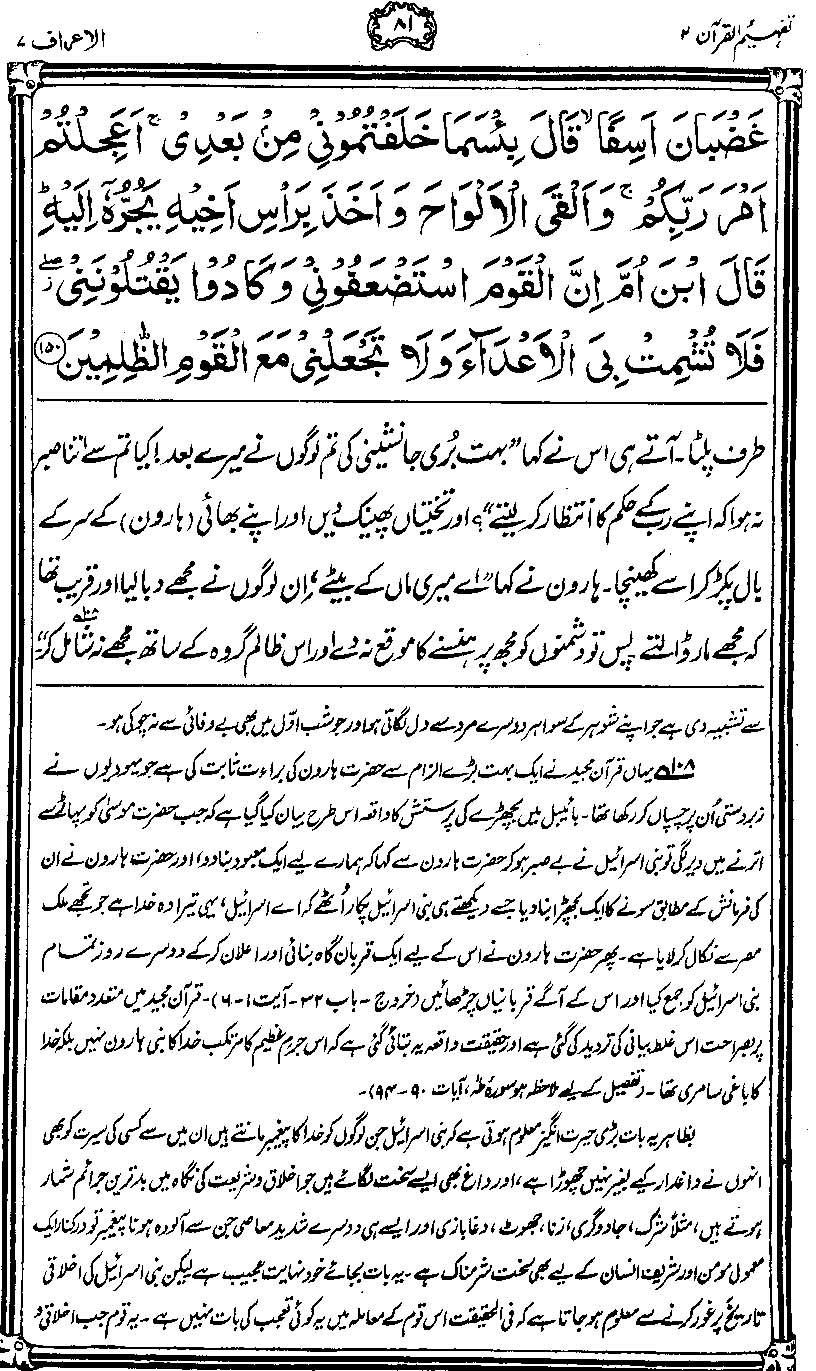 تفہیم القرآن ۲
۸۱
الاعراف ۷
غَضْبَانَ اَسِفًا ۙ قَالَ بِئْسَمَا خَلَفْتُمُوْنِیْ مِنْۢ بَعْدِیْ ۚ اَعَجِلْتُمْ
اَمْرَ رَبِّكُمْ ۚ وَاَلْقَی الْاَلْوَاحَ وَاَخَذَ بِرَاْسِ اَخِیْهِ یَجُرُّهٗۤ اِلَیْهِ ؕ
قَالَ ابْنَ اُمَّ اِنَّ الْقَوْمَ اسْتَضْعَفُوْنِیْ وَكَادُوْا یَقْتُلُوْنَنِیْ ۖز
فَلَا تُشْمِتْ بِیَ الْاَعْدَآءَ وَلَا تَجْعَلْنِیْ مَعَ الْقَوْمِ الظّٰلِمِیْنَ ﴿۱۵۰﴾
طرف پلٹا۔ آتے ہی اس نے کہا ”بہت بُری جانشینی کی تم لوگوں نے میرے بعد! کیا تم سے اتنا صبر
نہ ہوا کہ اپنے رب کے حکم کا انتظار کر لیتے“؟ اور تختیاں پھینک دیں اور اپنے بھائی (ہارون) کے سر کے
بال پکڑ کر اسے کھینچا۔ ہارون نے کہا ”اے میری ماں کے بیٹے، اِن لوگوں نے مجھے دبا لیا اور قریب تھا
کہ مجھے مار ڈالتے پس تو دشمنوں کو مجھ پر ہنسنے کا موقع نہ دے اور اس ظالم گروہ کے ساتھ مجھے نہ شامل کر۱۰۸“
سے تشبیہ دی ہے جو اپنے شوہر کے سوا ہر دوسرے مرد سے دل لگاتی ہو اور جو شب اوّل میں بھی بے وفائی سے نہ چوکی ہو۔
۱۰۸ یہاں قرآن مجید نے ایک بہت بڑے الزام سے حضرت ہارون کی براءت ثابت کی ہے جو یہودیوں نے
زبردستی اُن پر چسپاں کر رکھا تھا۔ بائیبل میں بچھڑے کی پرستش کا واقعہ اس طرح بیان کیا گیا ہے کہ جب حضرت موسیٰ کو پہاڑ سے
اترنے میں دیر لگی تو بنی اسرائیل نے بے صبر ہو کر حضرت ہارون سے کہا کہ ہمارے لیے ایک معبود بنا دو، اور حضرت ہارون نے ان
کی فرمائش کے مطابق سونے کا ایک بچھڑا بنا دیا جسے دیکھتے ہی بنی اسرائیل پکار اُٹھے کہ اے اسرائیل، یہی تیرا وہ خدا ہے جو تجھے ملک
مصر سے نکال کر لایا ہے۔ پھر حضرت ہارون نے اس کے لیے ایک قربان گاہ بنائی اور اعلان کر کے دوسرے روز تمام
بنی اسرائیل کو جمع کیا اور اس کے آگے قربانیاں چڑھائیں (خروج۔ باب ۳۲۔ آیت ۱-۶)۔ قرآن مجید میں متعدد مقامات
پر بصراحت اس غلط بیانی کی تردید کی گئی ہے اور حقیقت واقعہ یہ بتائی گئی ہے کہ اس جرم عظیم کا مرتکب خدا کا نبی ہارون نہیں بلکہ خدا
کا باغی سامری تھا۔ (تفصیل کے لیے ملاحظہ ہو سورۂ طٰہٰ، آیات ۹۰-۹۴)۔
بظاہر یہ بات بڑی حیرت انگیز معلوم ہوتی ہے کہ بنی اسرائیل جن لوگوں کو خدا کا پیغمبر مانتے ہیں ان میں سے کسی کی سیرت کو بھی
انہوں نے داغدار کیے بغیر نہیں چھوڑا ہے، اور داغ بھی ایسے سخت لگائے ہیں جو اخلاق و شریعت کی نگاہ میں بدترین جرائم شمار
ہوتے ہیں، مثلاً شرک، جادوگری، زنا، جھوٹ، دغابازی اور ایسے ہی دوسرے شدید معاصی جن سے آلودہ ہونا پیغمبر تو درکنار ایک
معمولی مومن اور شریف انسان کے لیے بھی سخت شرمناک ہے۔ یہ بات بجائے خود نہایت عجیب ہے لیکن بنی اسرائیل کی اخلاقی
تاریخ پر غور کرنے سے معلوم ہو جاتا ہے کہ فی الحقیقت اس قوم کے معاملہ میں یہ کوئی تعجب کی بات نہیں ہے۔ یہ قوم جب اخلاقی و